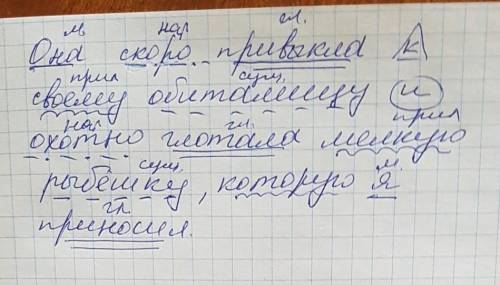 м нар гл.
Она скоро привыкла к
прил сущ.
своему обиталищу и
нар гл. прил
охотно глотала мелкую
сущ. м.
рыбёшку, которую я
гл
приносил.